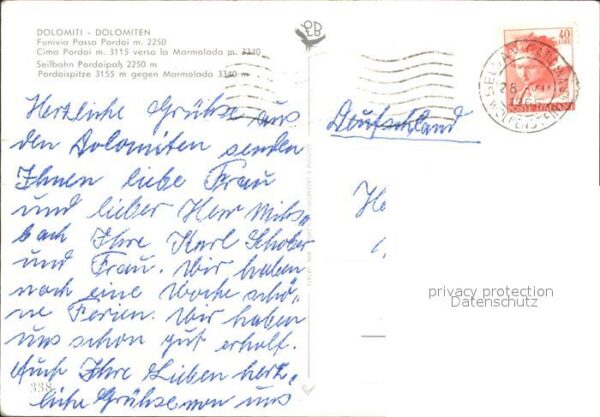 DOLOMITI - DOLOMITEN
Funivia Passo Pordoi m. 2250
Cima Pordoi m. 3115 verso la Marmolada m. 3340
Seilbahn Pordoipaß 2250 m
Pordoispitze 3155 m gegen Marmolada 3340 m
Herzliche Grühse aus
den Dolomiten senden
Ihnen liebe Frau
und lieber Herr Miks
bach Ihre Karl Schober
und Frau. Wir haben
noch eine Woche schö-
ne Ferien. Wir haben
uns schon gut erholt.
Auch Ihre Lieben herz-
liche Grühse von uns
338
40
LIRE
POSTE ITALIANE
Deutschland
He
privacy protection
Datenschutz